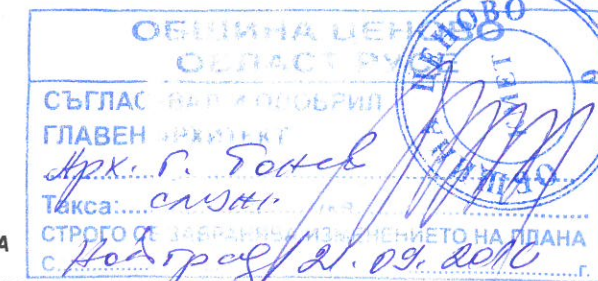 ОБЩИНА ЦЕНОВО
ОБЛАСТ РУСЕ
СЪГЛАСУВАЛ И ОДОБРИЛ
ГЛАВЕН АРХИТЕКТ
Арх. Г. Тонев
Такса:.... служ.
СТРОГО СЕ ЗАБРАНЯВА ИЗМЕНЕНИЕТО НА ПЛАНА
с. Новград / 21.09.2010 г.
ОБЩИНА ЦЕНОВО
А